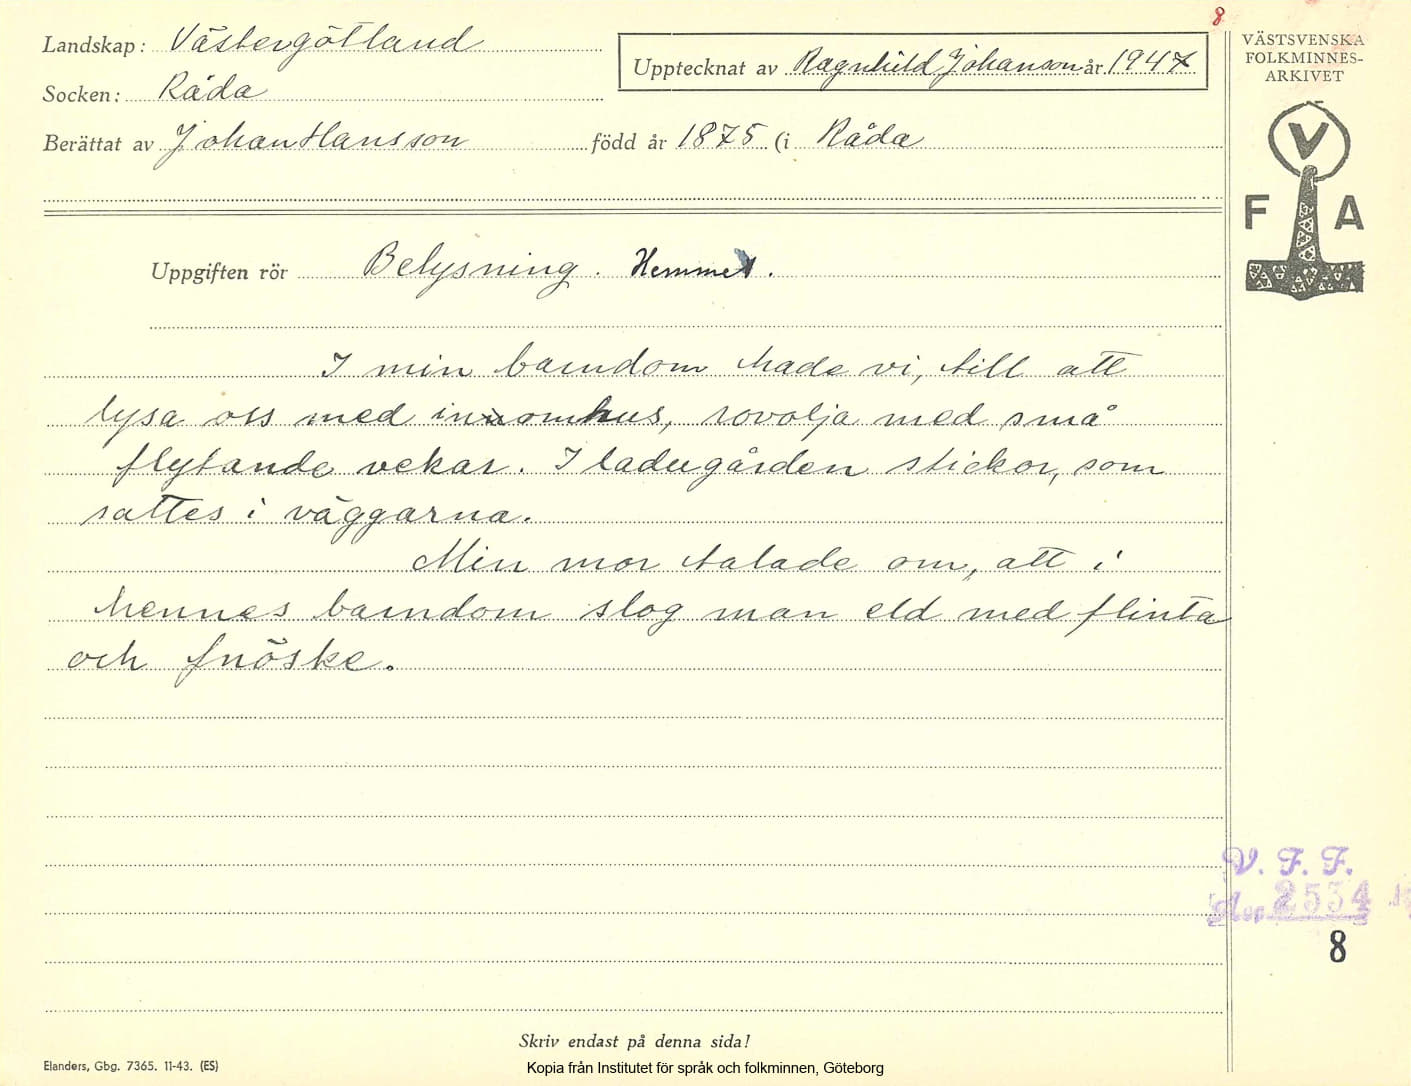 8
Landskap: Västergötland
Socken: Råda
Berättat av Johan Hansson född år 1875 (i Råda
Upptecknat av Ragnhild Johanson år 1947
VÄSTSVENSKA
FOLKMINNES-
ARKIVET
V
F A
Uppgiften rör Belysning. Hemmet.
I min barndom hade vi, till att
lysa oss med inomhus, rovolja med små
flytande vekar. I ladugården stickor, som
sattes i väggarna.
Min mor talade om, att i
hennes barndom slog man eld med flinta
och fnöske.
V. F. F.
Acc 2534
8
Skriv endast på denna sida!
Elanders, Gbg. 7365. 11-43. (ES)
Kopia från Institutet för språk och folkminnen, Göteborg